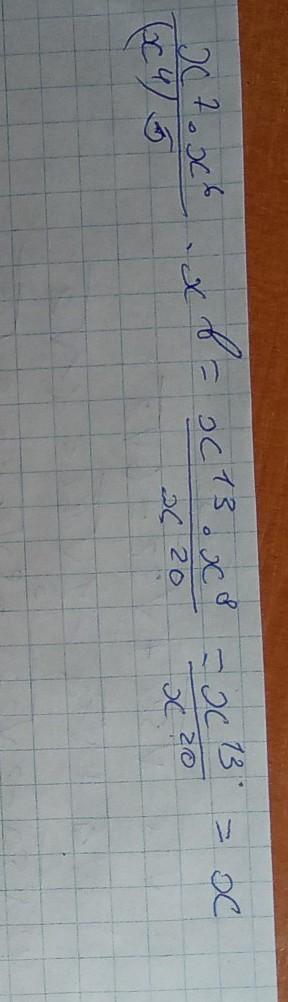 x⁷·x⁶/(x⁴)⁵ · x⁸ = x¹³·x⁸/x²⁰ = x¹³·/x²⁰ = x